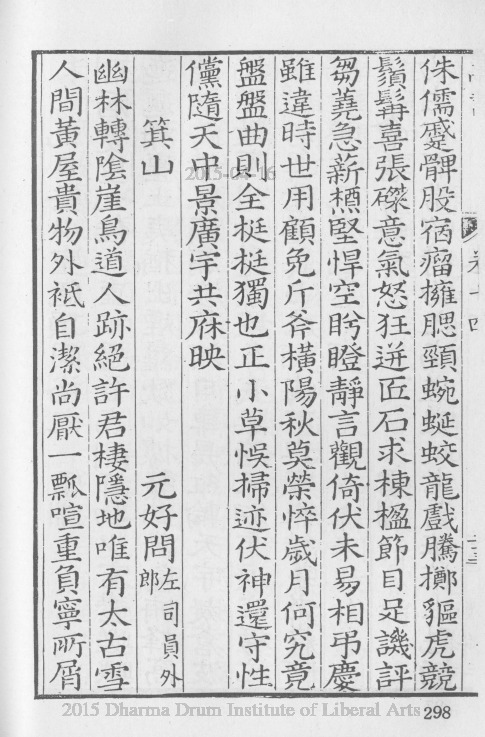 侏儒蹙髀股宿瘤擁腮頸蜿蜒蛟龍戲騰擲貙虎競
鬚髯喜張磔意氣怒狂迸匠石求棟楹節目足譏評
芻蕘急薪槱堅悍空眄瞪靜言觀倚伏未易相弔慶
雖違時世用顧免斤斧橫陽秋莫榮悴歲月何究竟
盤盤曲則全挺挺獨也正小草悞掃迹伏神還守性
儻隨天中景廣宇共庥映
箕山 元好問 左司員外郎
幽林轉陰崖鳥道人跡絕許君棲隱地唯有太古雪
人間黃屋貴物外祗自潔尚厭一瓢喧重負寧所屑
卷十四
2015 Dharma Drum Institute of Liberal Arts
298